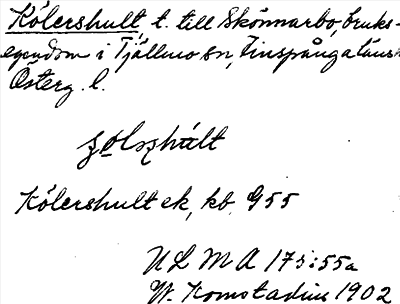 Kölershult, t. till Skönnarbo, bruks-
egendom i Tjällmo sn, Finspånga läns h
Österg. l.
Kölershult ek, kb. G55
ULMA 175:55a
W. Komstadius 1902